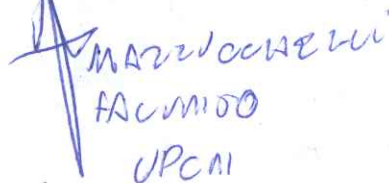 MAZZUCCHELLI
FACUNDO
UPCN